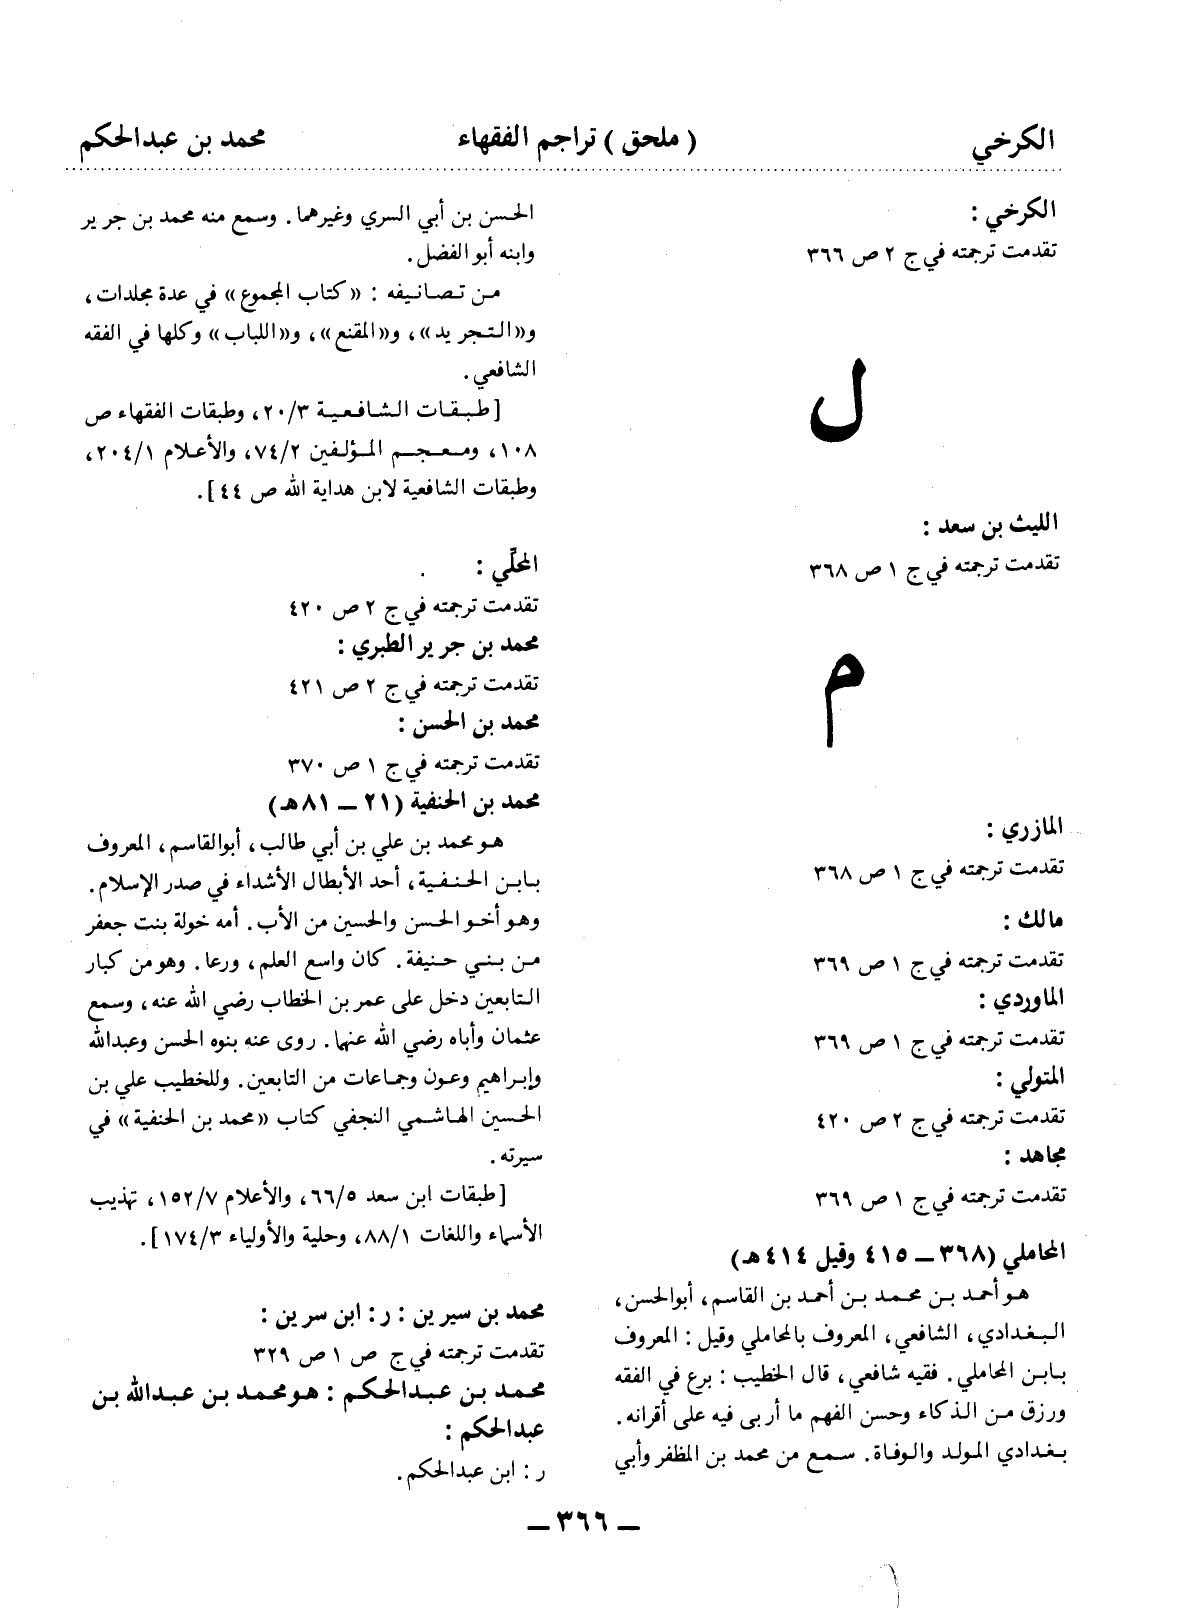 الكرخي
( ملحق ) تراجم الفقهاء
محمد بن عبدالحكم
الكرخي :
تقدمت ترجمته في ج ٢ ص ٣٦٦
ل
الليث بن سعد :
تقدمت ترجمته في ج ١ ص ٣٦٨
م
المازري :
تقدمت ترجمته في ج ١ ص ٣٦٨
مالك :
تقدمت ترجمته في ج ١ ص ٣٦٩
الماوردي :
تقدمت ترجمته في ج ١ ص ٣٦٩
المتولي :
تقدمت ترجمته في ج ٢ ص ٤٢٠
مجاهد :
تقدمت ترجمته في ج ١ ص ٣٦٩
المحاملي (٣٦٨ ــ ٤١٥ وقيل ٤١٤ هـ)
هو أحمد بن محمد بن أحمد بن القاسم، أبوالحسن،
البغدادي، الشافعي، المعروف بالمحاملي وقيل : المعروف
بابن المحاملي. فقيه شافعي، قال الخطيب : برع في الفقه
ورزق من الذكاء وحسن الفهم ما أربى فيه على أقرانه.
بغدادي المولد والوفاة. سمع من محمد بن المظفر وأبي
الحسن بن أبي السري وغيرهما. وسمع منه محمد بن جرير
وابنه أبو الفضل.
من تصانيفه : «كتاب المجموع» في عدة مجلدات،
و«التجريد»، و«المقنع»، و«اللباب» وكلها في الفقه
الشافعي.
[طبقات الشافعية ٢٠/٣، وطبقات الفقهاء ص
١٠٨، ومعجم المؤلفين ٧٤/٢، والأعلام ٢٠٤/١،
وطبقات الشافعية لابن هداية الله ص ٤٤].
المحلّي :
تقدمت ترجمته في ج ٢ ص ٤٢٠
محمد بن جرير الطبري :
تقدمت ترجمته في ج ٢ ص ٤٢١
محمد بن الحسن :
تقدمت ترجمته في ج ١ ص ٣٧٠
محمد بن الحنفية (٢١ ــ ٨١ هـ)
هو محمد بن علي بن أبي طالب، أبوالقاسم، المعروف
بابن الحنفية، أحد الأبطال الأشداء في صدر الإسلام.
وهو أخو الحسن والحسين من الأب. أمه خولة بنت جعفر
من بني حنيفة. كان واسع العلم، ورعا. وهو من كبار
التابعين دخل على عمر بن الخطاب رضي الله عنه، وسمع
عثمان وأباه رضي الله عنهما. روى عنه بنوه الحسن وعبدالله
وإبراهيم وعون وجماعات من التابعين. وللخطيب علي بن
الحسين الهاشمي النجفي كتاب «محمد بن الحنفية» في
سيرته.
[طبقات ابن سعد ٦٦/٥، والأعلام ١٥٢/٧، تهذيب
الأسماء واللغات ٨٨/١، وحلية والأولياء ١٧٤/٣].
محمد بن سيرين : ر: ابن سرين :
تقدمت ترجمته في ج ص ١ ص ٣٢٩
محمد بن عبدالحكم : هو محمد بن عبدالله بن
عبدالحكم :
ر : ابن عبدالحكم.
ــ ٣٦٦ ــ